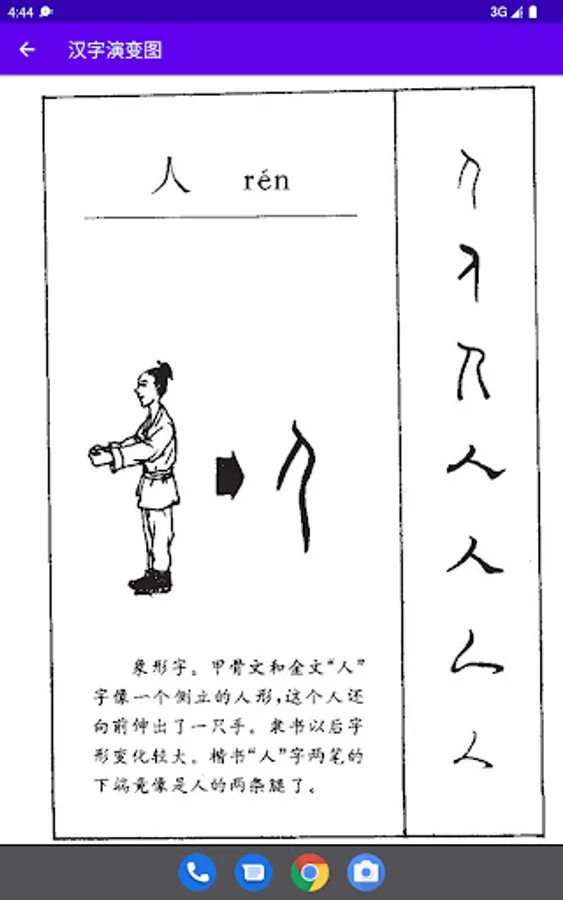 4:44
3G
汉字演变图
人 rén
象形字。甲骨文和金文“人”
字像一个侧立的人形,这个人还
向前伸出了一只手。隶书以后字
形变化较大。楷书“人”字两笔的
下端竟像是人的两条腿了。
人
人
人
人